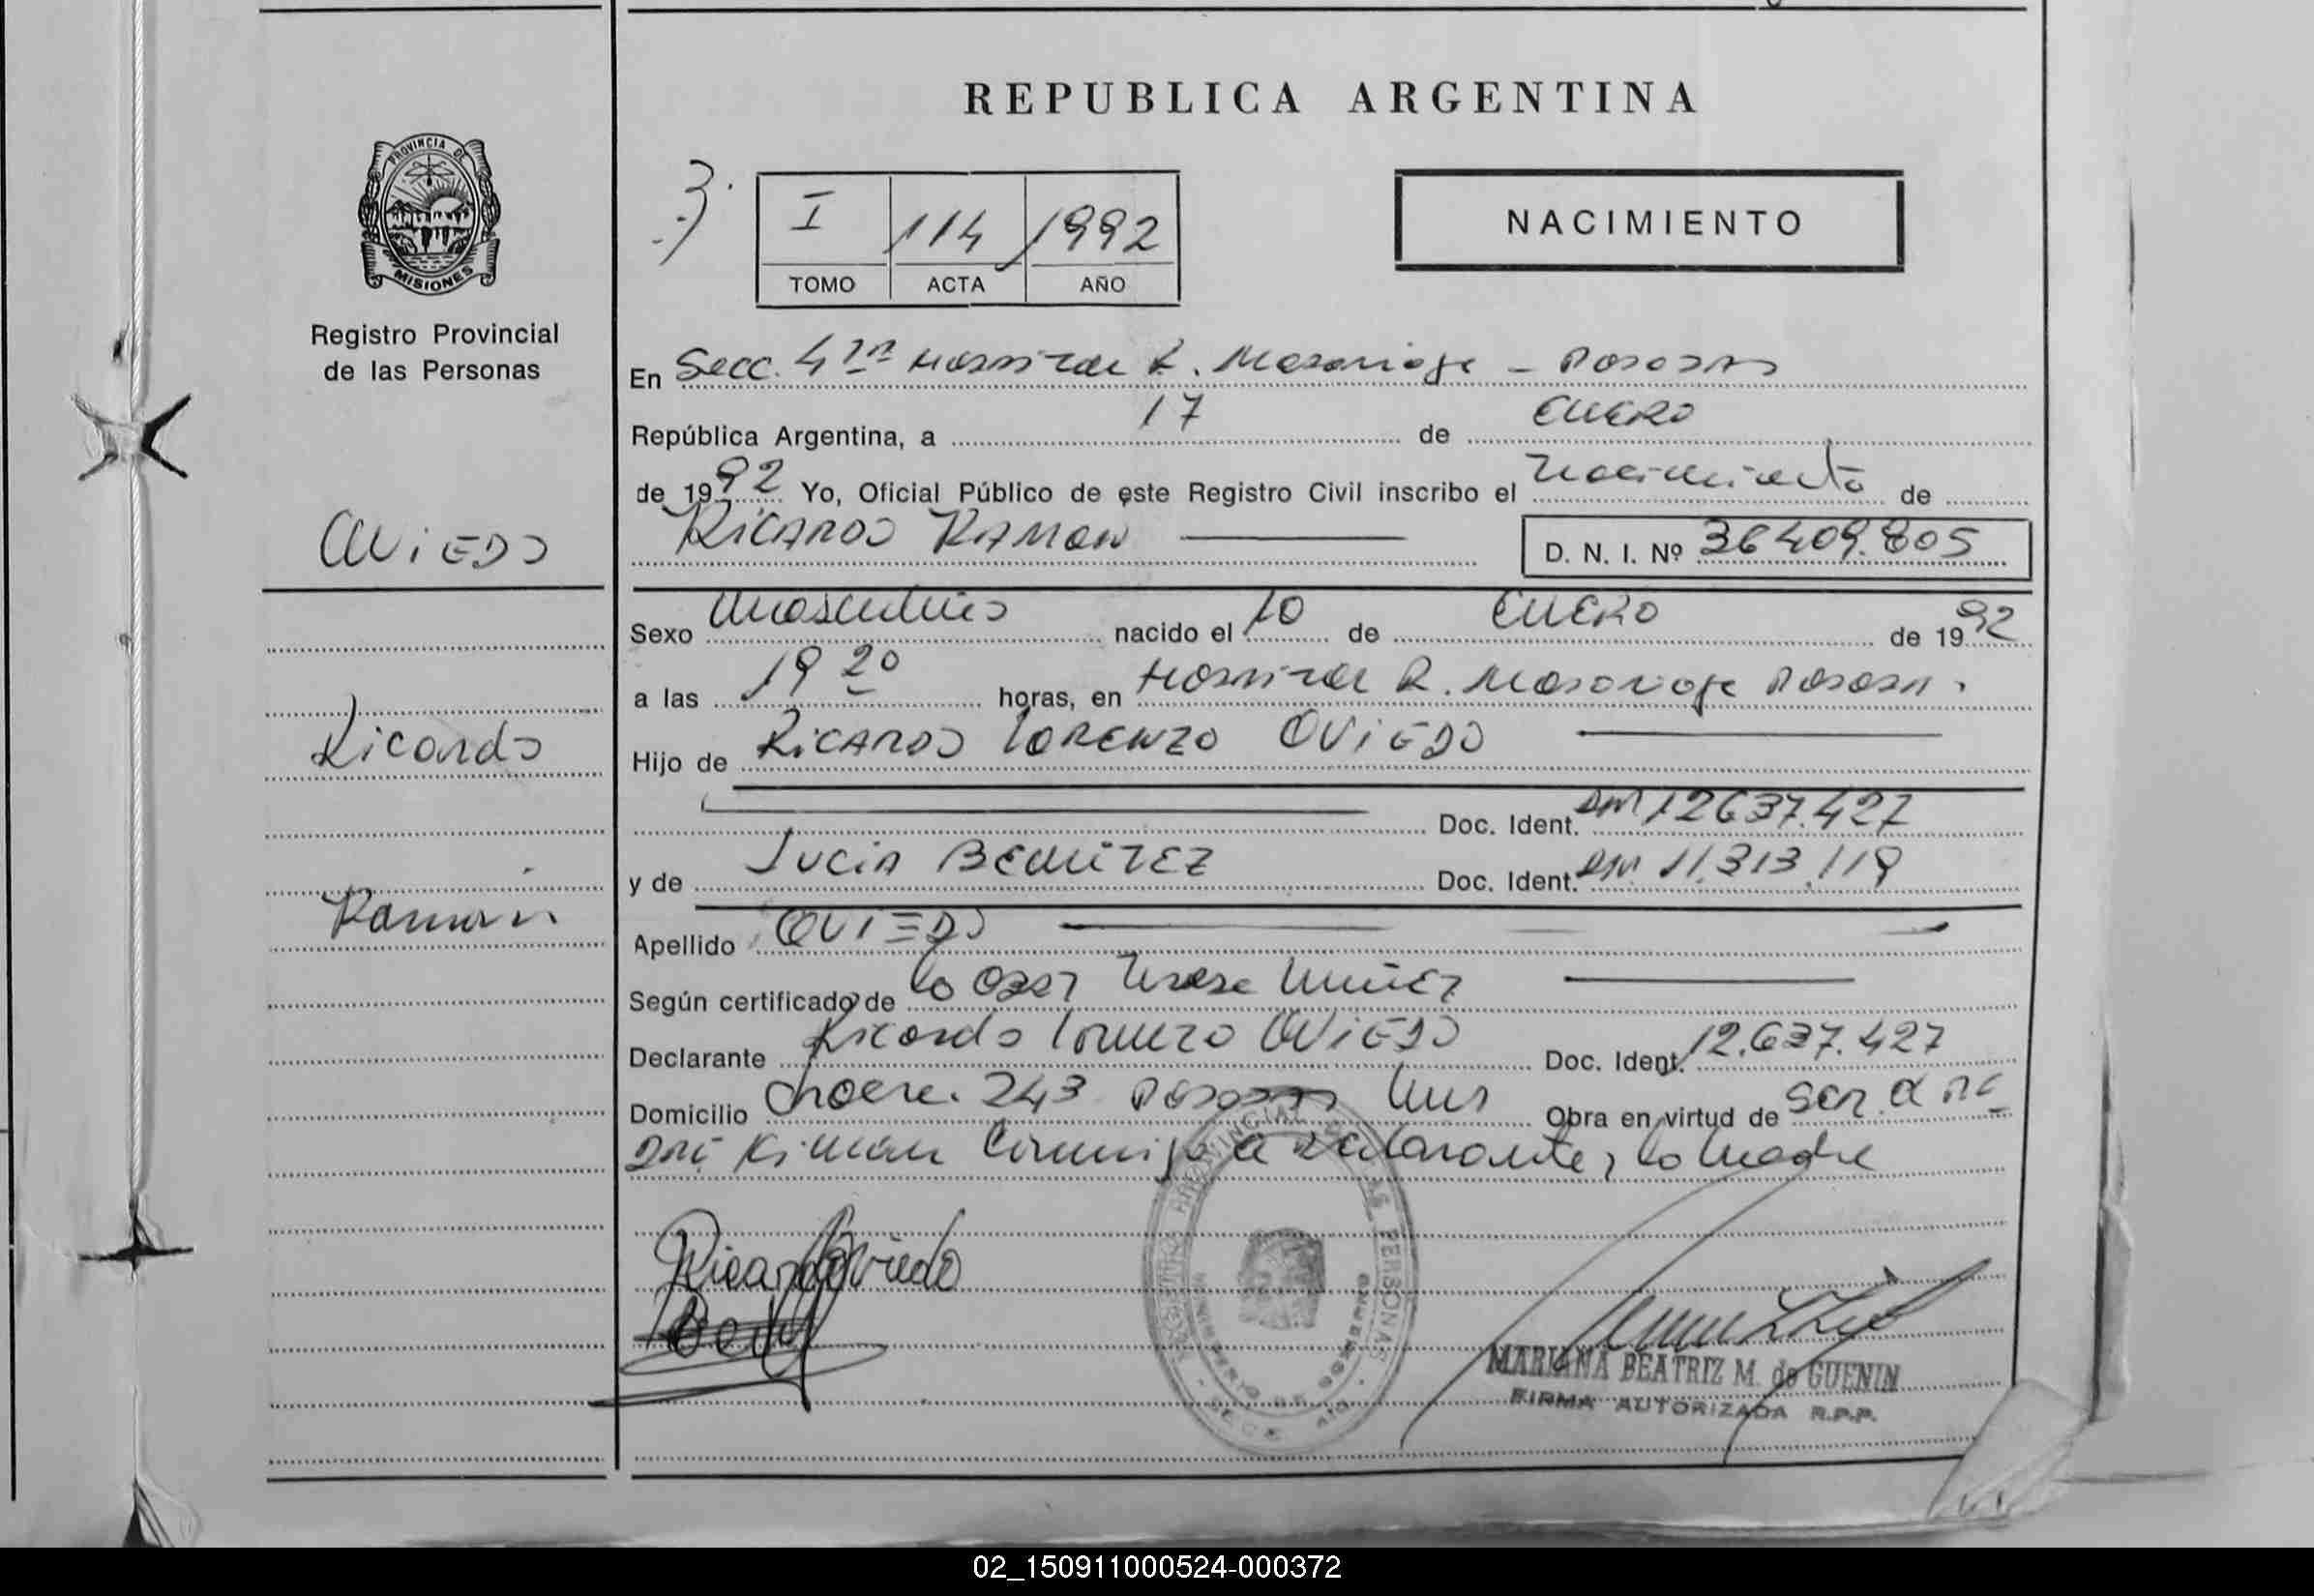 REPUBLICA ARGENTINA
PROVINCIA DE
MISIONES
Registro Provincial
de las Personas
3.
I 114 1992
TOMO ACTA AÑO
NACIMIENTO
En Secc. 4ta Hospital R. Madariaga - Posadas
República Argentina, a 17 de ENERO
de 1992 Yo, Oficial Público de este Registro Civil inscribo el nacimiento de
RICARDO RAMON
D. N. I. Nº 36409.805
OVIEDO
Ricardo
Ramón
Sexo masculino nacido el 10 de ENERO de 1992
a las 19 20 horas, en Hospital R. Madariaga Posadas.
Hijo de RICARDO LORENZO OVIEDO
Doc. Ident. DNI 12637.427
y de LUCIA BENITEZ Doc. Ident. DNI 11.313.119
Apellido OVIEDO
Según certificado de la Obst Teresa Nuñez
Declarante Ricardo Lorenzo OVIEDO Doc. Ident. 12.637.427
Domicilio 243 Posadas Mnes Obra en virtud de ser el pe
dre. Firman conmigo el declarante y la madre
Ricardo Oviedo
REGISTRO PROVINCIAL DE LAS PERSONAS
MINISTERIO DE GOBIERNO
MARIANA BEATRIZ M. de GUENIN
FIRMA AUTORIZADA R.P.P.
02_150911000524-000372